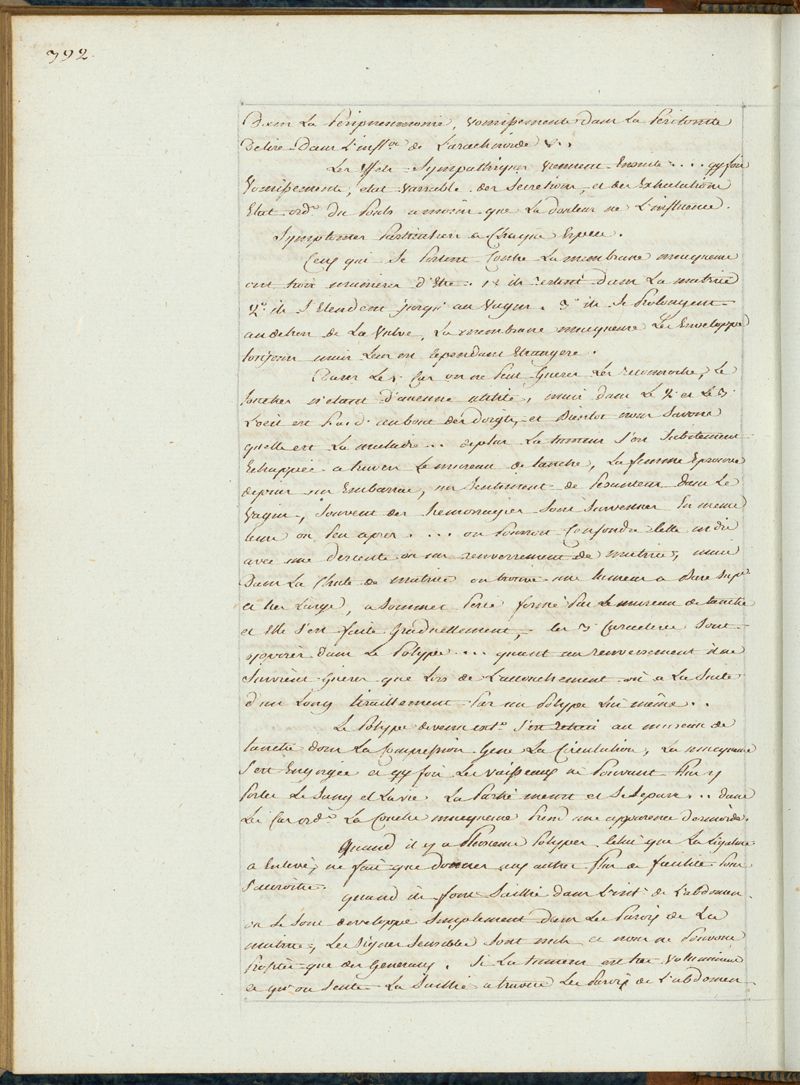 392.
Dans La Péripneumonie, vomissements dans La Péritonite
Délire dans L'inff.on de L'arachnoïde &..
Les effets sympathiques viennent ensuite .... qq fois
vomissements, état variable des secrétions, et des Exhalations
Etat ord.e du Pouls a moins que La douleur ne L'influence.
Symptomes Particuliers a Chaque Espece.
Ceux qui se Portent Contre La membrane muqueuse
ont trois manieres d'etre. 1° ils restent dans La matrice
2° ils s'Etendent jusqu'au vagin. 3° ils se Prolongent
au dehors de La vulve, La membrane muqueuse Les Enveloppe
toujours mais Leur est cependant Etrangere.
Dans Le 1.er Cas on ne Peut Guères Les reconnoitre, Le
toucher n'étant d'aucune utilité, mais dans Le 2.e et Le 3.e
L'oeil est au bout des doigts, et Bientot nous savons
quelle est La maladie ... La tumeur s'est subitement
Echappée a travers Le museau de tanche, La femme Eprouve
depuis un Embarras, un sentiment de Pesanteur dans Le
vagin, souvent des hemorragies sont survenues En meme
tems ou Peu après .... on Pourroit Confondre cette
avec une descente ou un renversement de matrice, mais
dans La Chute de matrice on trouve une tumeur a Base sup.e
et tres Large, a sommet Percé formé Par Le museau de tanche
et Elle s'est faite Graduellement, Les 3 Caracteres sont
opposés dans Le Polype ... quant au renversement il ne
survient Guères que Lors de L'accouchement ou a La Suite
d'un Long tiraillement Par un Polype Lui même..
Le Polype devenu ext.e s'est retréci au museau de
tanche dont La Compression Gene La Circulation, La muqueuse
s'est Engorgée et qq fois Les vaisseaux ne Pouvant Plus y
Porter Le Sang et La vie. La Partie meurt et se separe ... dans
Le Cas ord.e La Couche muqueuse Prend une apparence dermoïde.
Quand il y a Plusieurs Polypes Celui que La Ligature
a Enlevé, ne fait que donner aux autres Plus de facilité Pour
s'accroitre.
quand ils font saillie dans L'int.r de L'abdomen
ou se sont developpés simplement dans Les Parois de La
matrice, Les signes sensibles sont nuls et nous ne Pouvons
que des Generaux. Si La tumeur est tres volumineuse
et qu'on sente La Saillie a travers Les Parois de L'abdomen